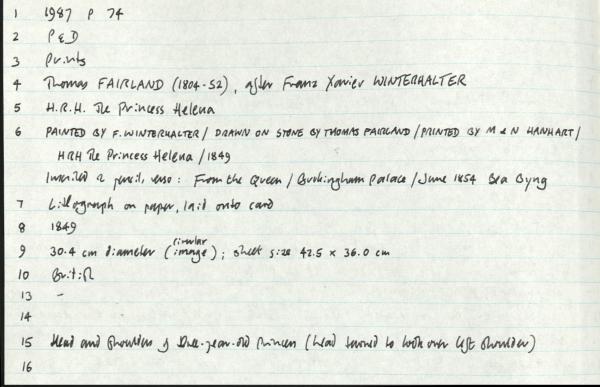 1 1987 P 74
2 P & D
3 Prints
4 Thomas FAIRLAND (1804-52), after Franz Xavier WINTERHALTER
5 H.R.H. The Princess Helena
6 PAINTED BY F. WINTERHALTER / DRAWN ON STONE BY THOMAS FAIRLAND / PRINTED BY M & N HANHART /
HRH The Princess Helena / 1849
Inscribed in pencil, verso: From the Queen / Buckingham Palace / June 1854 Bea Byng
7 Lithograph on paper, laid onto card
8 1849
9 30.4 cm diameter (circular image); sheet size 42.5 x 36.0 cm
10 British
13 -
14
15 Head and shoulders of three-year-old princess (head turned to look over left shoulder)
16